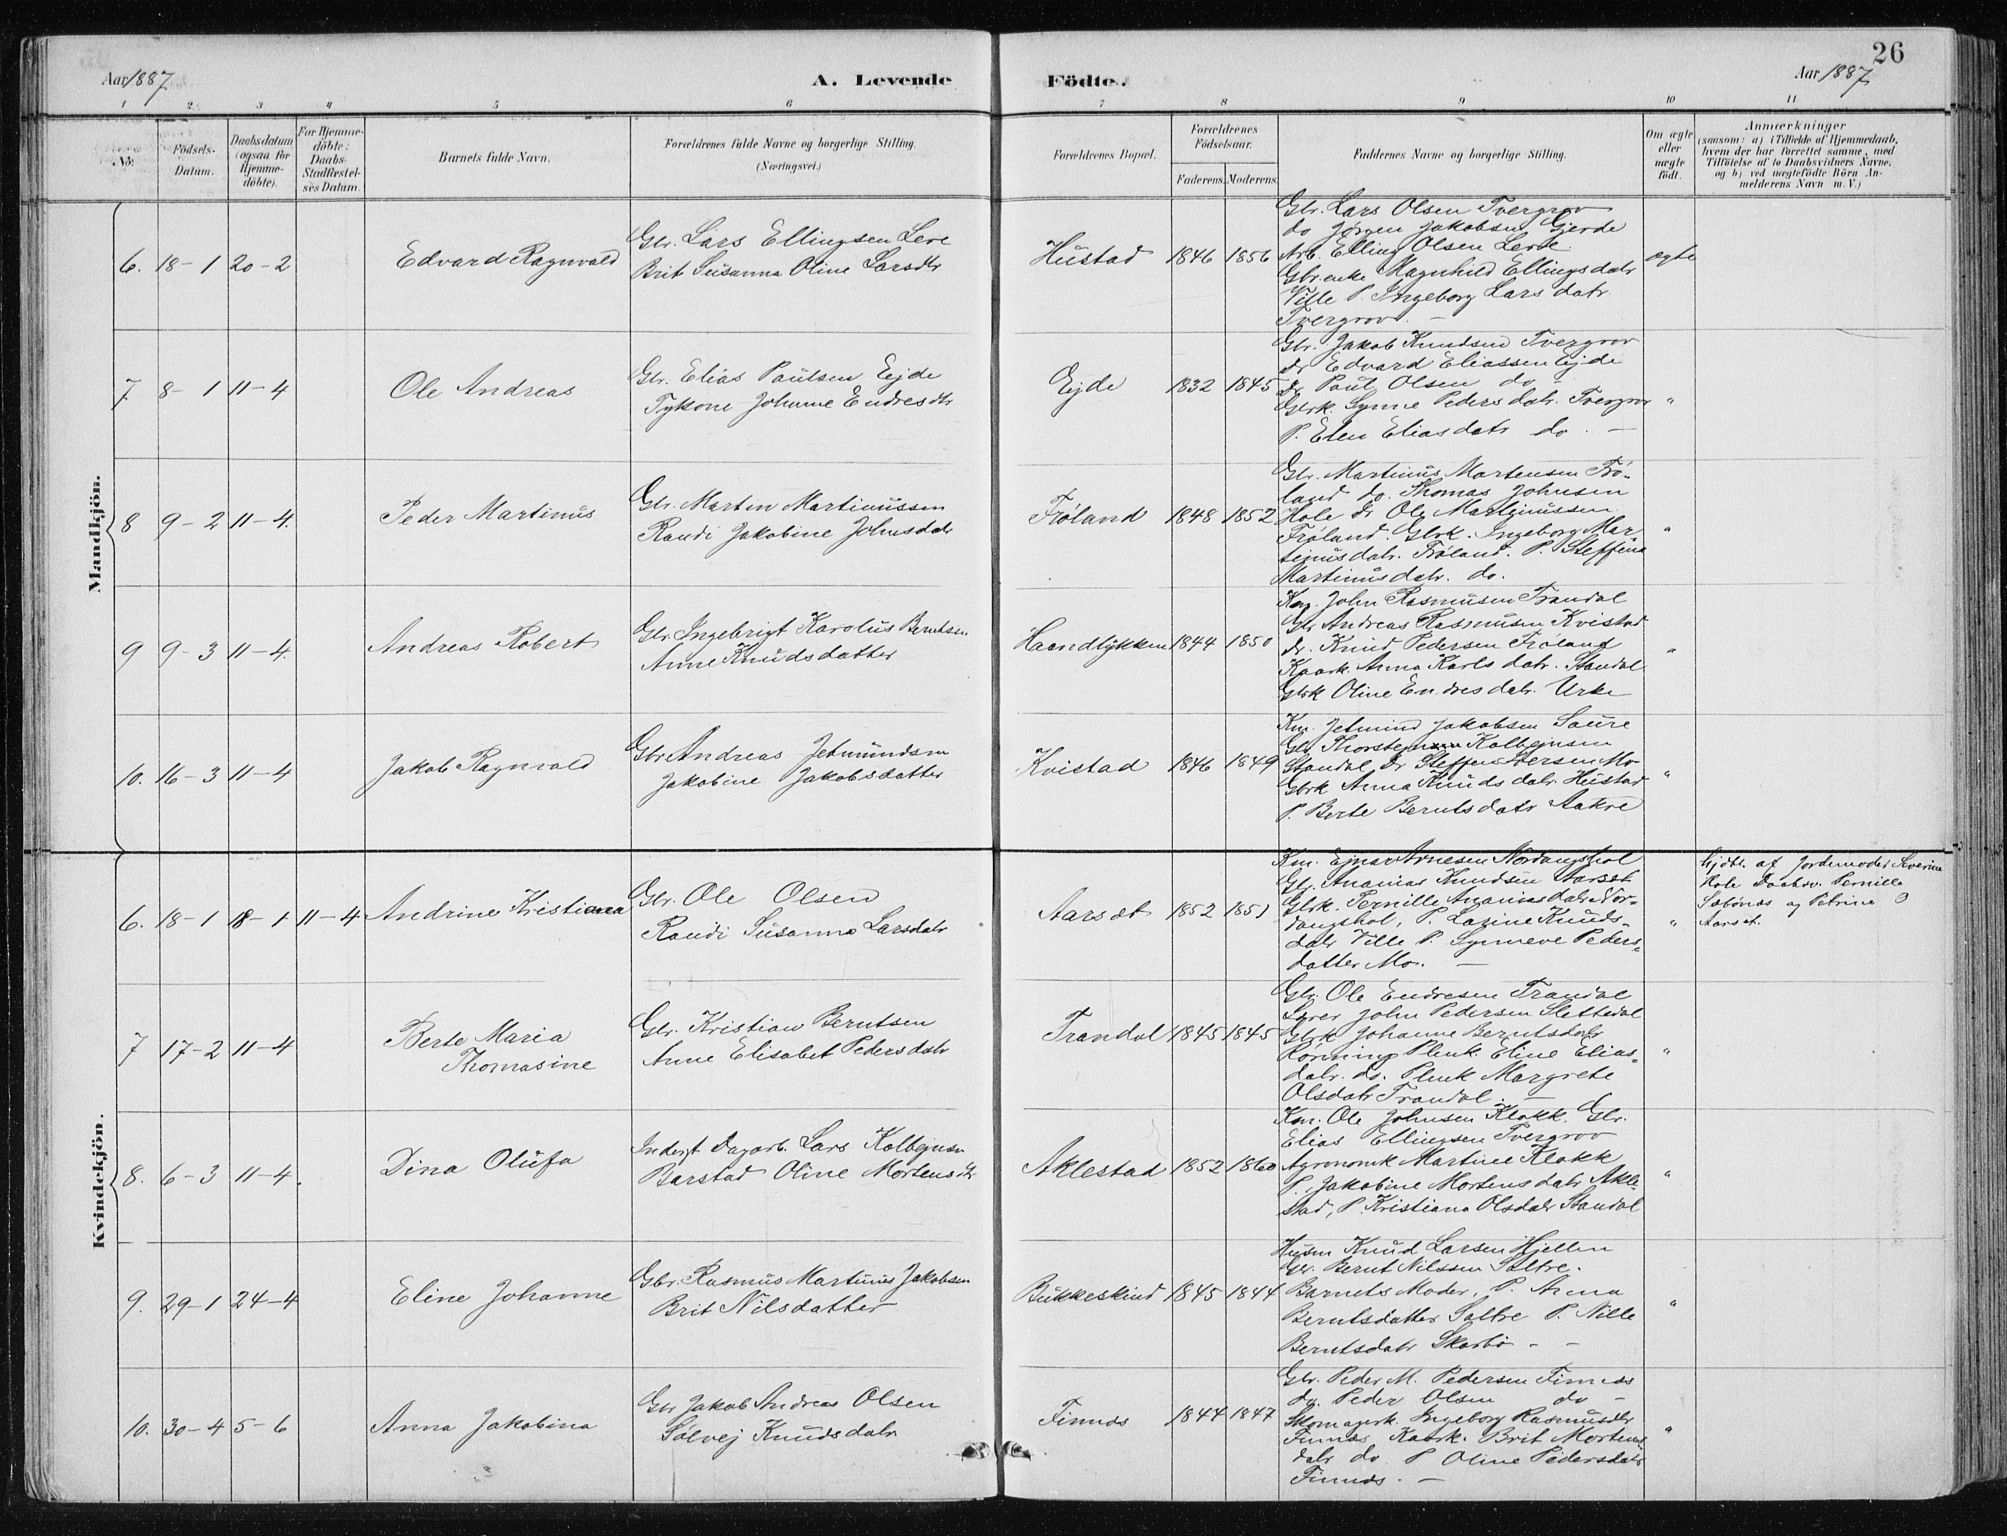 26
Aar 1887 A. Levende Födte. Aar 1887
1 2 3 4 5 6 7 8 9 10 11
No. Födsels-Datum. Daabsdatum (ogsaa för Hjemme-döbte). For Hjemme-döbte: Daabs-Stadfæstel-ses Datum. Barnets fulde Navn. Forældrenes fulde Navne og borgerlige Stilling. (Næringsvei.) Forældrenes Bopæl. Forældrenes Födselsaar. Faderens. Moderens. Faddernes Navne og borgerlige Stilling. Om ægte eller uægte födt. Anmærkninger (saasom: a) i Tilfælde af Hjemmedaab, hvem der har forrettet samme, med Tilföielse af to Daabsvidners Navne, og b) ved uægtefödte Börn An-melderens Navn m. V.)
Mandkjön.
6. 18-1 20-2 Edvard Ragnvald
Gbr. Lars Ellingsen Leve
Brit Susanna Oline Larsdtr
Hustad 1846 1856
Gbr. Lars Olsen Tvergrov
do Jørgen Jakobsen Gjerde
Arb. Elling Olsen Leve
Gbr.enke Magnhild Ellingsdatr
Ville P. Ingeborg Larsdatr.
Tvergrov. –
ægte
7 8-1 11-4 Ole Andreas
Gbr. Elias Paulsen Eyde
Johanne Endresdtr
Eyde 1832 1845
Gbr. Jakob Knudsen Tvergrov
dr Edvard Eliassen Eyde
dr Paul Olsen do –
Gbrk. Synne Pedersdatr. Tvergrov
P. Elen Eliasdatr do. –
"
8 9-2 11-4. Peder Martinus
Gbr. Martin Martinussen
Randi Jakobine Johnsdatr
Frøland 1848 1852
Gbr. Martinus Martensen Frø-
land do. Thomas Johnsen
Hole dr Ole Martinussen
Frøland. Gbrk. Ingeborg Mar-
tinusdatr. Frøland. P. Steffina
Martinusdatr. do.
"
9 9-3 11-4. Andreas Robert
Gbr. Ingebrigt Karolus Berntsen
Anne Knudsdatter
Haandlykken 1844 1850
Kaar. John Rasmusen Trandal
Gbr Andreas Rasmusen Kvistad
dr. Knud Pedersen Frøland
Kaark. Anna Karlsdatr. Standal
Gbrk Oline Endresdatr. Urke
"
10. 16-3 11-4 Jakob Ragnvald
Gbr. Andreas Jetmundsen
Jakobine Jakobsdatter
Kvistad 1846 1849
Km. Jetmund Jakobsen Saure
Gbr. Thorstein Kolbeinsen
Standal dr Steffen Iversen Mo
Gbrk Anna Knudsdatr. Hustad
P. Berte Berntsdatr Aakre
"
Kvindekjön.
6. 18-1 18-1 11-4 Andrine Kristianea
Gbr. Ole Olsen
Randi Susanna Larsdatr
Aarset 1852 1851
Km. Ejnar Arnesen Nordangshol
Gbr. Ananias Knudsen Aarset
Gbrk. Pernille Ananiasdatr Nor-
dangshol, P. Lasine Knuds-
datr Ville P. Synneve Peders-
datter Mo. –
"
hjdbt. af Jordemoder Severine
Hole Daabsv. Pernille
Sæbønes og Petrine
Aarset.
7 17-2 11-4 Berte Maria
Thomasine
Gbr. Kristian Berntsen
Anne Elisabet Pedersdatr
Trandal 1845 1845
Gbr. Ole Endresen Trandal
John Pedersen Slettedal
Gbrk Johanne Berntsdatr
Plenk. Eline Elias-
datr. do. Plenk Margrete
Olsdatr Trandal. –
"
8. 6-3 11-4. Dina Olufa
Inderst Dagarb. Lars Kolbeinsen
Barstad Oline Mortensdtr
Aklestad 1852 1860
Km. Ole Johnsen Klokk. Gbr.
Elias Ellingsen Tvergrov
Agronomk Martine Klokk
P. Jakobine Mortensdatr Akle-
stad, P. Kristiana Olsdatr Standal
"
9. 29-1 24-4 Eline Johanne
Gbr. Rasmus Martinus Jakobsen
Brit Nilsdatter
Bukkeskind 1845 1844
Husm Knud Larsen Hjellen
Gbr. Bernt Nilssen Saltre.
Barnets Moder, P. Anna
Berntsdatter Saltre P. Nille
Berntsdatr Skarbø – –
"
10. 30-4 5-6 Anna Jakobina
Gbr Jakob Andreas Olsen
Solvej Knudsdatr
Finnes 1844 1847
Gbr. Peder M. Pedersen Finnes
do. Peder Olsen do –
Skomagerk. Ingeborg Rasmusdtr
Finnes Kaark. Brit Mortens
datr do P Oline Pedersdatr
Finnes. –
"